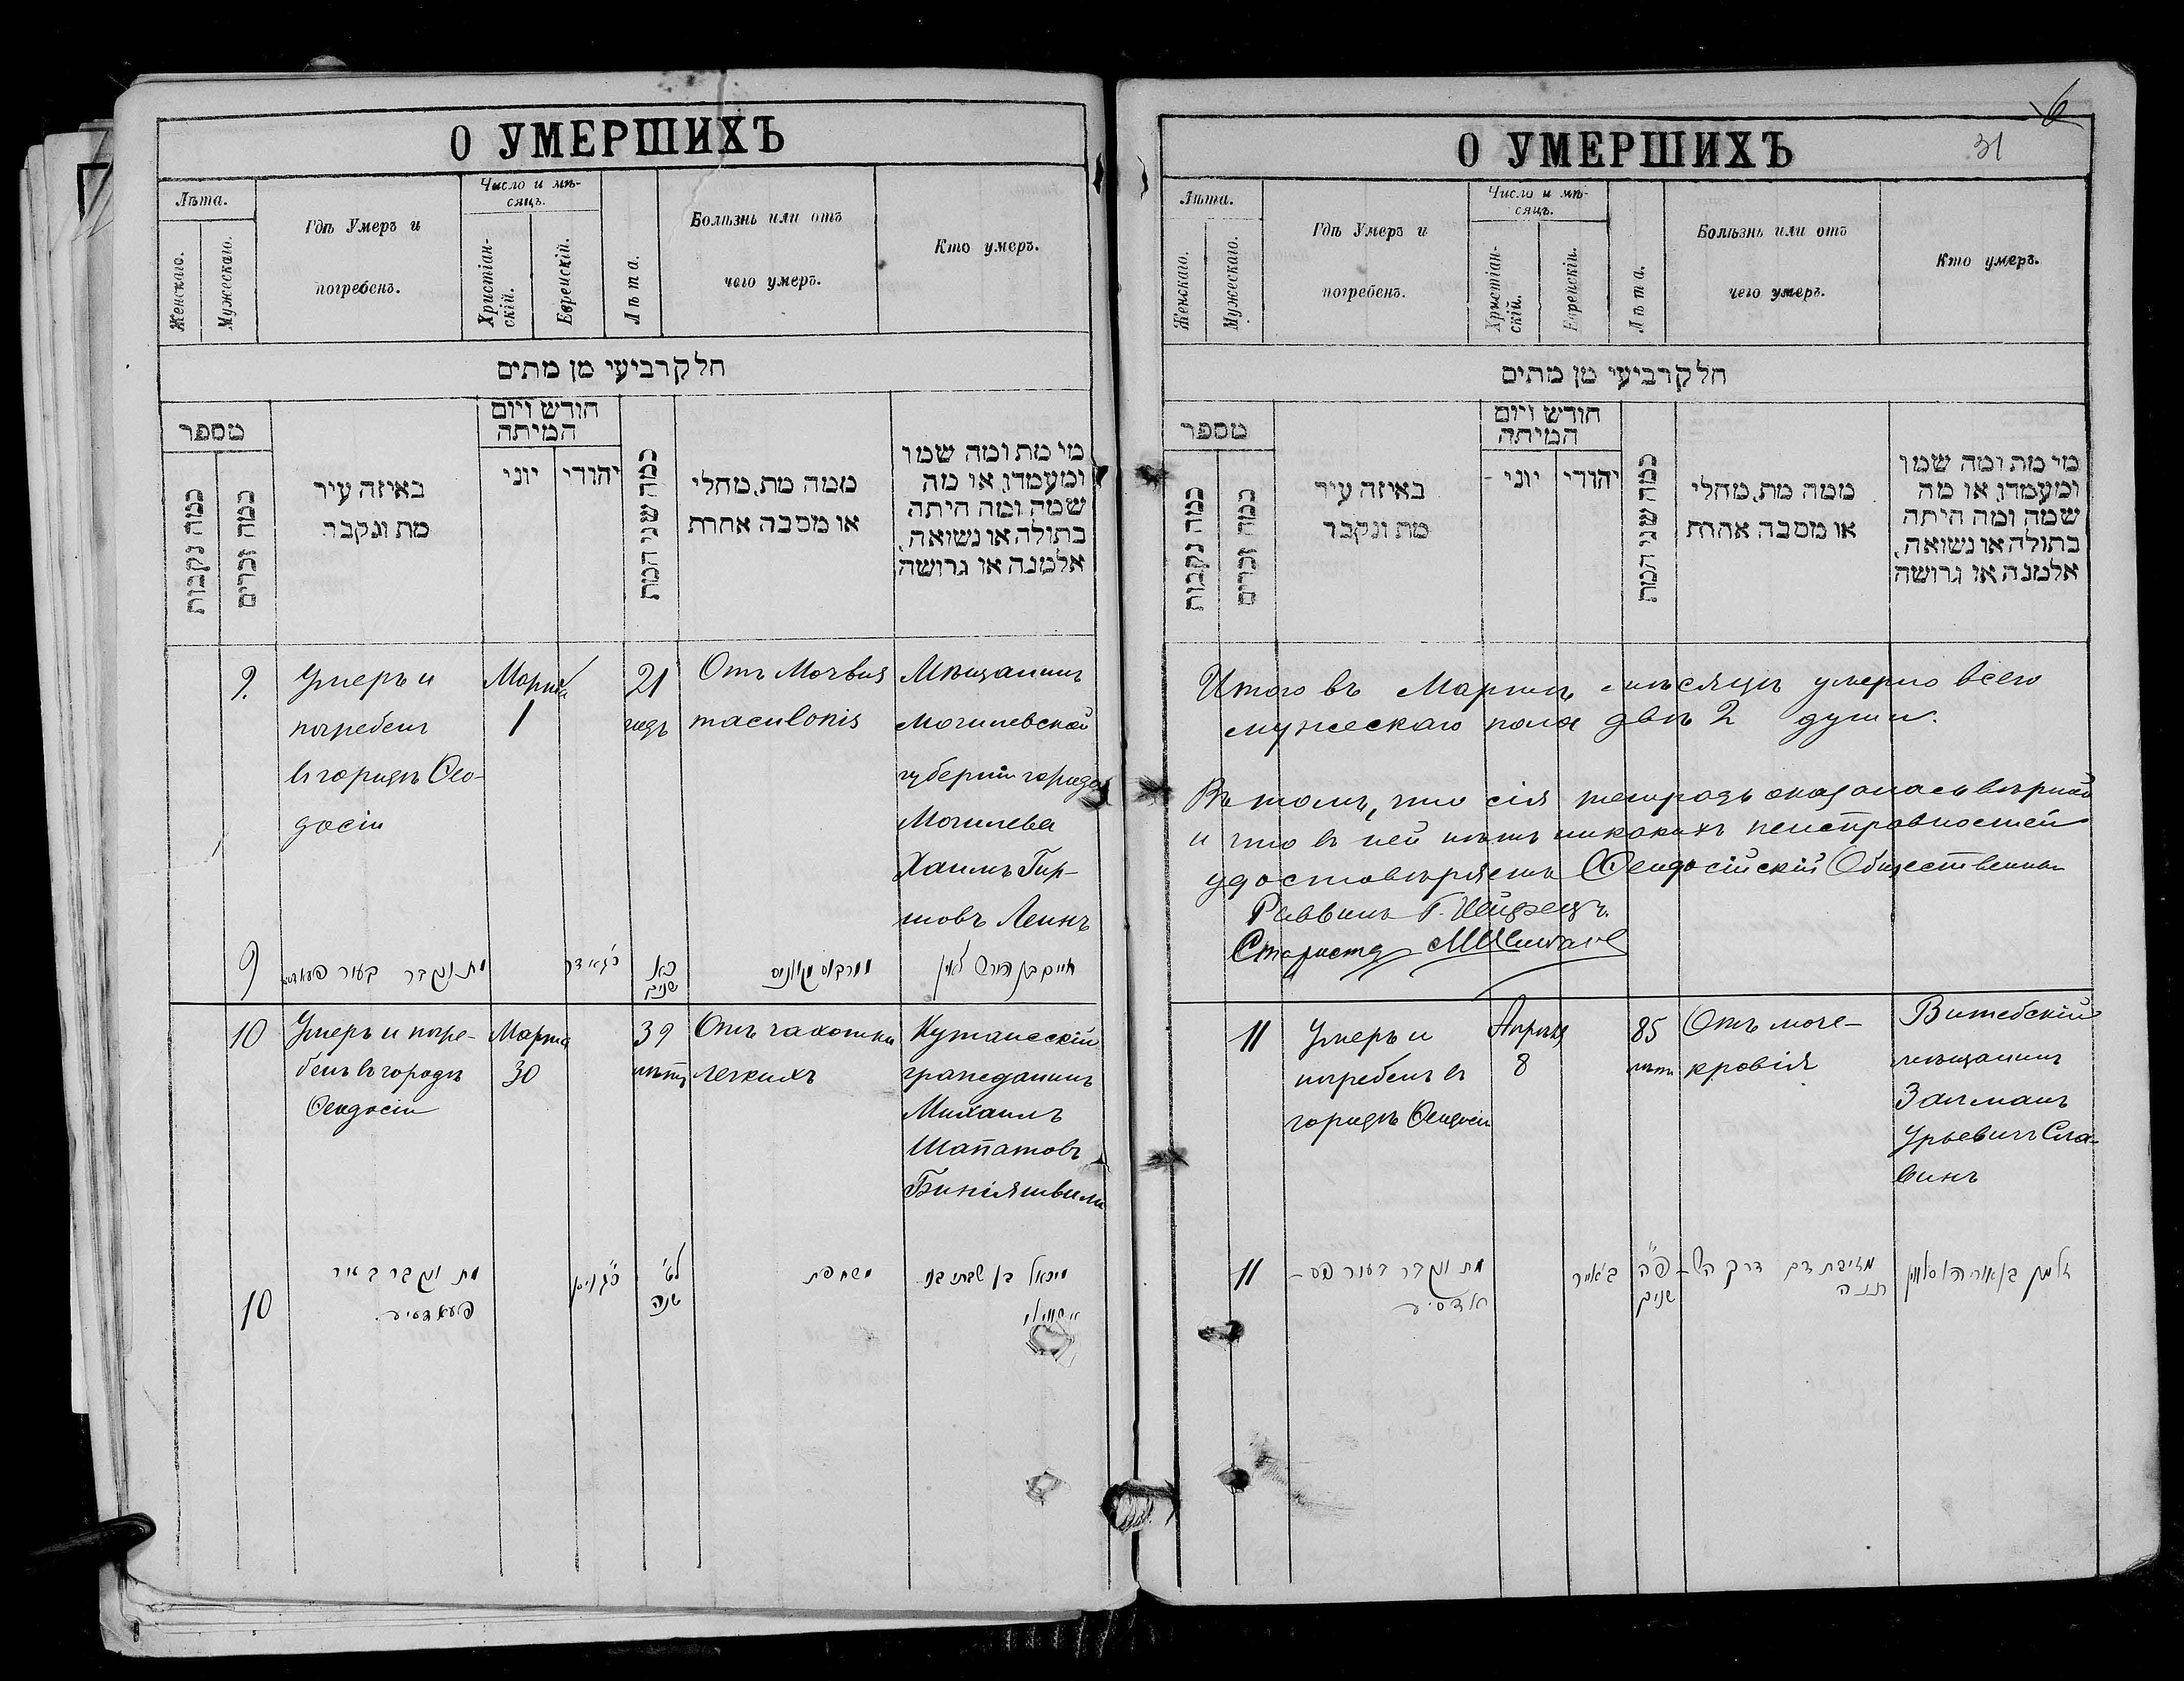 О УМЕРШИХЪ
Лѣта.
Женскаго.
Мужескаго.
Гдѣ Умеръ и
погребенъ.
Число и мѣ-
сяцъ.
Христіан-
скій.
Еврейскій.
Лѣта.
Болѣзнь или отъ
чего умеръ.
Кто умеръ.
חלק רביעי מן מתים
מספר
כמה נקבות
כמה זכרים
באיזה עיר
מת ונקבר
חודש ויום
המיתה
יוני
יהודי
כמה שני המת
ממה מת, מחלי
או מסבה אחרת
מי מת ומה שמו
ומעמדו, או מה
שמה ומה היתה
בתולה או נשואה,
אלמנה או גרושה
9.
Умеръ и
погребенъ
въ городѣ Ѳео-
досіи
Марта
1
21
годъ
Отъ Morbus
maculonis
Мѣщанинъ
Могилевской
губерніи города
Могилева
Хаимъ Гир-
шовъ Левинъ
9
מת ונקבר בעיר
כ״ג אדר
כא
שנים
חיים בן הירש לעווין
10
Умеръ и погре-
бенъ въ городѣ
Ѳеодосіи
Марта
30
39
лѣтъ
Отъ чахотки
легкихъ
Кутаисскій
гражданинъ
Михаилъ
Шапатовъ
Биніяшвили
10
מת ונקבר בעיר
פעאדאסיע
כ״ג ניסן
ל״ט
שנה
משחפת
מיכאל בן שבתי
6
31
О УМЕРШИХЪ
Лѣта.
Женскаго.
Мужескаго.
Гдѣ Умеръ и
погребенъ.
Число и мѣ-
сяцъ.
Христіан-
скій.
Еврейскій.
Лѣта.
Болѣзнь или отъ
чего умеръ.
Кто умеръ.
חלק רביעי מן מתים
מספר
כמה נקבות
כמה זכרים
באיזה עיר
מת ונקבר
חודש ויום
המיתה
יוני
יהודי
כמה שני המת
ממה מת, מחלי
או מסבה אחרת
מי מת ומה שמו
ומעמדו, או מה
שמה ומה היתה
בתולה או נשואה,
אלמנה או גרושה
Итого въ Мартѣ мѣсяцѣ умерло всего
мужескаго пола двѣ 2 души.
Въ томъ, что сія тетрадь оказалась вѣрной
и что въ ней нѣтъ никакихъ неисправностей
удостовѣряетъ Ѳеодосійскій Общественный
Раввинъ Г.
Староста
11
Умеръ и
погребенъ въ
городѣ Ѳеодосіи
Апрѣля
8
85
лѣтъ
Отъ моче-
кровія
Витебскій
мѣщанинъ
Залманъ
Урьевичъ Сла-
винъ
11
מת ונקבר בעיר פע-
אדסיע
ב׳ אייר
פ״ה
שנים
מזיבת דם דרך
זלמן בן אורי סלאווין